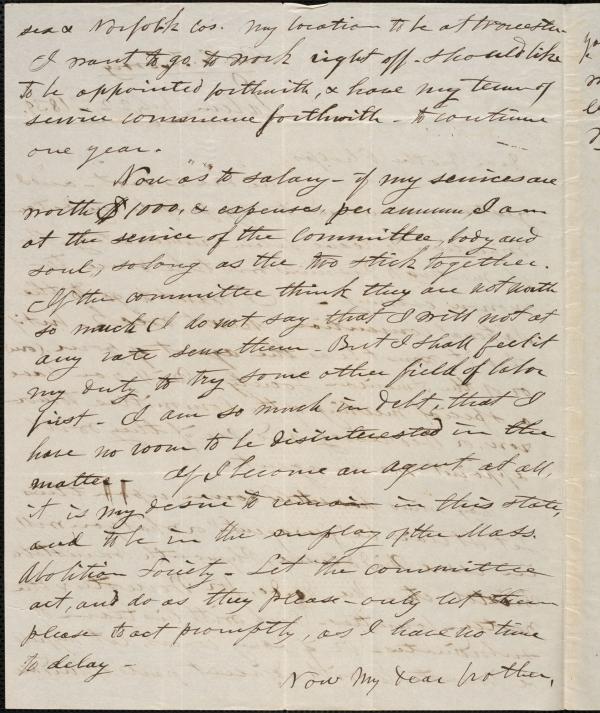 sex & Norfolk cos. My location to be at Worcester
I want to go to work right off - should like
to be appointed forthwith, & have my term of
service commence forthwith - to continue
one year.
Now "as" to salary - if my services are
worth $1000, & expenses, per annum, I am
at the service of the Committee, body and
soul, so long as the two stick together.
If the committee think they are not worth
so much I do not say that I will not at
any rate serve them - But I shall feel it
my duty to try some other field of labor
first - I am so much in debt, that I
have no room to be disinterested in the
matter - If I become an Agent at all,
it is my desire to remain in this state,
and to be in the employ of the Mass.
Abolition Society - Let the committee
act, and do as they please - only let them
please to act promptly, as I have no time
to delay -
Now My Dear brother,